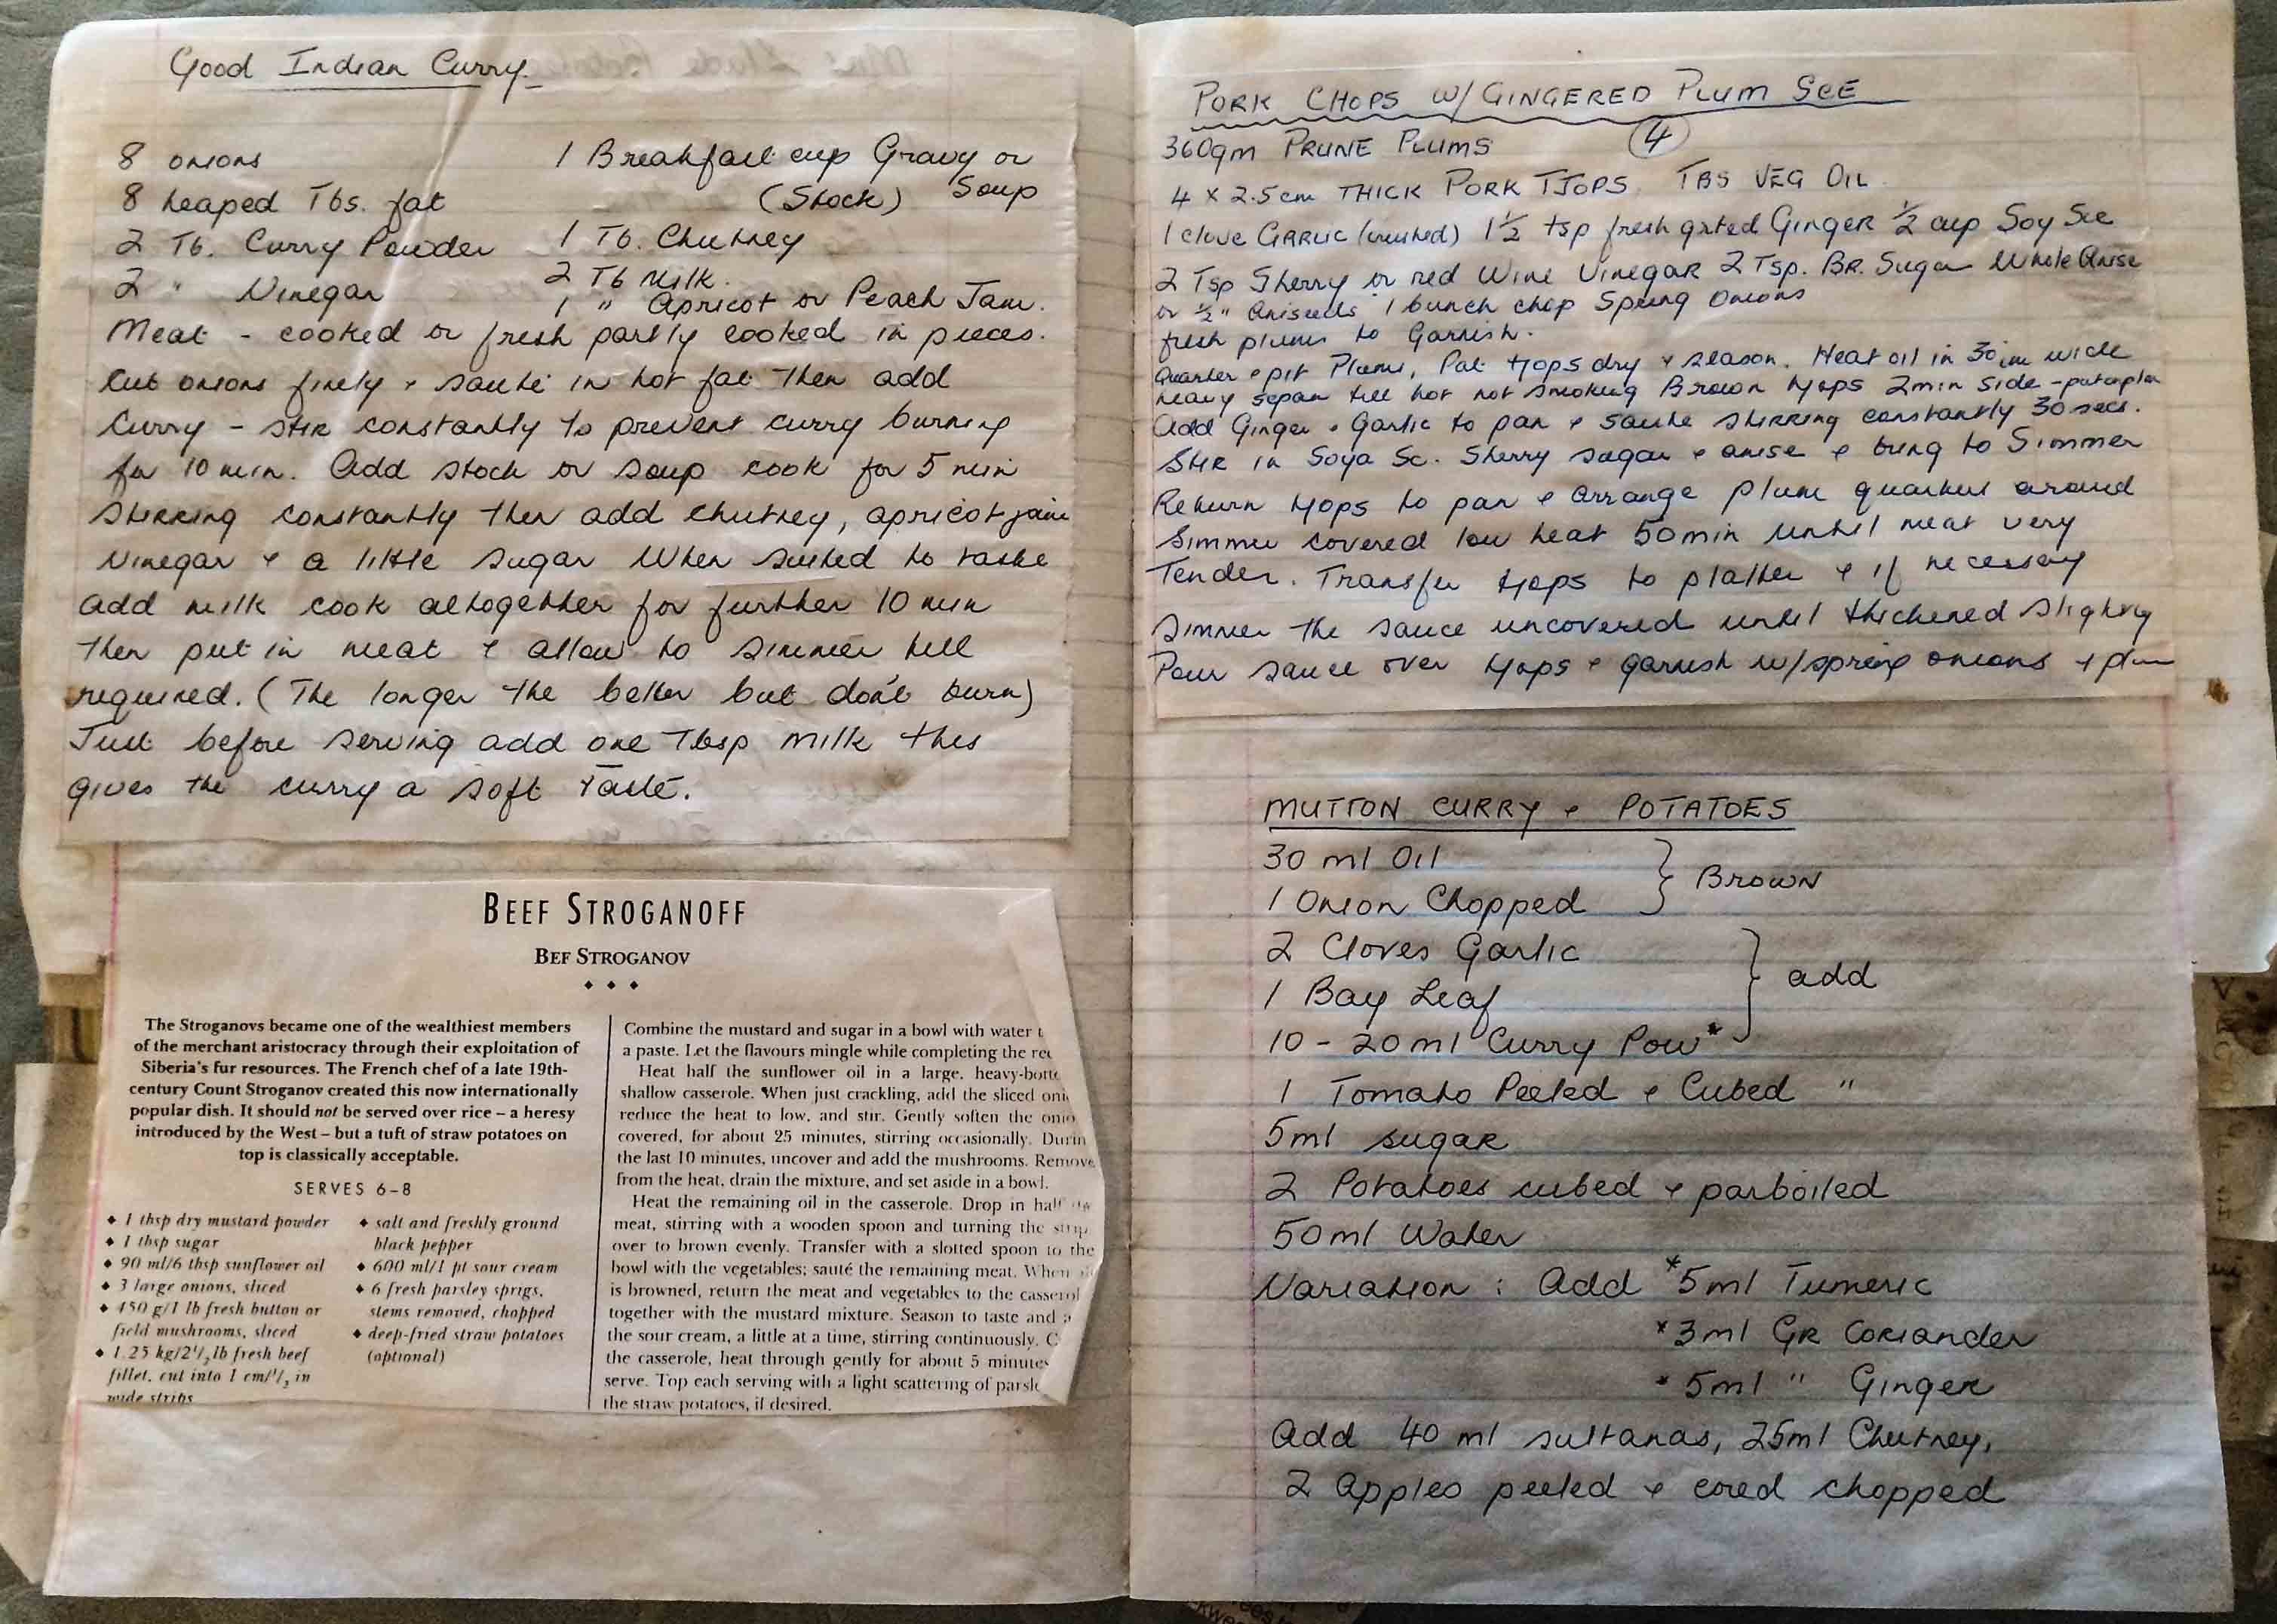 Good Indian Curry.
8 onions
8 heaped Tbs. fat
2 Tb. Curry Powder
2 " Vinegar
1 Breakfast cup Gravy or
(Stock) Soup
1 Tb. Chutney
2 Tb Milk.
1 " Apricot or Peach Jam.
Meat - cooked or fresh partly cooked in pieces.
Cut onions finely & sauté in hot fat then add
Curry - stir constantly to prevent curry burning
for 10 min. Add stock or soup cook for 5 min
stirring constantly then add chutney, apricot jam
Vinegar & a little sugar When suited to taste
add milk cook altogether for further 10 min
then put in meat & allow to simmer till
required. (The longer the better but don't burn)
Just before serving add one Tbsp milk this
gives the curry a soft taste.
BEEF STROGANOFF
BEF STROGANOV
The Stroganovs became one of the wealthiest members
of the merchant aristocracy through their exploitation of
Siberia's fur resources. The French chef of a late 19th-
century Count Stroganov created this now internationally
popular dish. It should not be served over rice – a heresy
introduced by the West – but a tuft of straw potatoes on
top is classically acceptable.
SERVES 6–8
◆ 1 tbsp dry mustard powder
◆ 1 tbsp sugar
◆ 90 ml/6 tbsp sunflower oil
◆ 3 large onions, sliced
◆ 450 g/1 lb fresh button or
field mushrooms, sliced
◆ 1.25 kg/2½ lb fresh beef
fillet, cut into 1 cm/½ in
wide strips
◆ salt and freshly ground
black pepper
◆ 600 ml/1 pt sour cream
◆ 6 fresh parsley sprigs,
stems removed, chopped
◆ deep-fried straw potatoes
(optional)
Combine the mustard and sugar in a bowl with water t
a paste. Let the flavours mingle while completing the rec
Heat half the sunflower oil in a large, heavy-botto
shallow casserole. When just crackling, add the sliced oni
reduce the heat to low, and stir. Gently soften the onio
covered, for about 25 minutes, stirring occasionally. Durin
the last 10 minutes, uncover and add the mushrooms. Remove
from the heat, drain the mixture, and set aside in a bowl.
Heat the remaining oil in the casserole. Drop in half the
meat, stirring with a wooden spoon and turning the strip
over to brown evenly. Transfer with a slotted spoon to the
bowl with the vegetables; sauté the remaining meat. When
is browned, return the meat and vegetables to the casserol
together with the mustard mixture. Season to taste and a
the sour cream, a little at a time, stirring continuously. C
the casserole, heat through gently for about 5 minutes
serve. Top each serving with a light scattering of parsle
the straw potatoes, if desired.
PORK CHOPS W/ GINGERED PLUM SCE
360gm PRUNE PLUMS 4
4 x 2.5cm THICK PORK TJOPS. TBS VEG OIL
1 clove GARLIC (crushed) 1½ tsp fresh grated Ginger ½ cup Soy Sce
2 Tsp Sherry or red Wine Vinegar 2 Tsp. Br. Sugar Whole Anise
or ½" Aniseeds 1 bunch chop Spring Onions
fresh plums to Garnish.
Quarter & pit Plums, Pat tjops dry & season. Heat oil in 30cm wide
heavy sepan till hot not smoking Brown tjops 2min side - put on plate
Add Ginger & Garlic to pan & saute stirring constantly 30 secs.
Stir in Soya Sc. Sherry sugar & anise & bring to Simmer
Return tjops to pan & arrange plum quarters around
Simmer covered low heat 50min until meat very
Tender. Transfer tjops to platter & if necessary
simmer the sauce uncovered until thickened slightly
Pour sauce over tjops & garnish w/spring onions & plum
MUTTON CURRY & POTATOES
30 ml Oil
1 Onion Chopped } Brown
2 Cloves Garlic
1 Bay Leaf } add
10 - 20 ml Curry Pow*
1 Tomato Peeled & Cubed "
5ml sugar
2 Potatoes cubed & parboiled
50ml Water
Variation : Add *5ml Tumeric
*3ml GR Coriander
*5ml " Ginger
Add 40 ml sultanas, 25ml Chutney,
2 Apples peeled & cored chopped